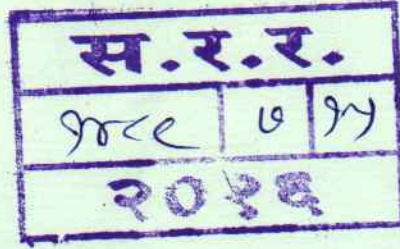 स.र.र.
१४८९ ७ १५
२०१६